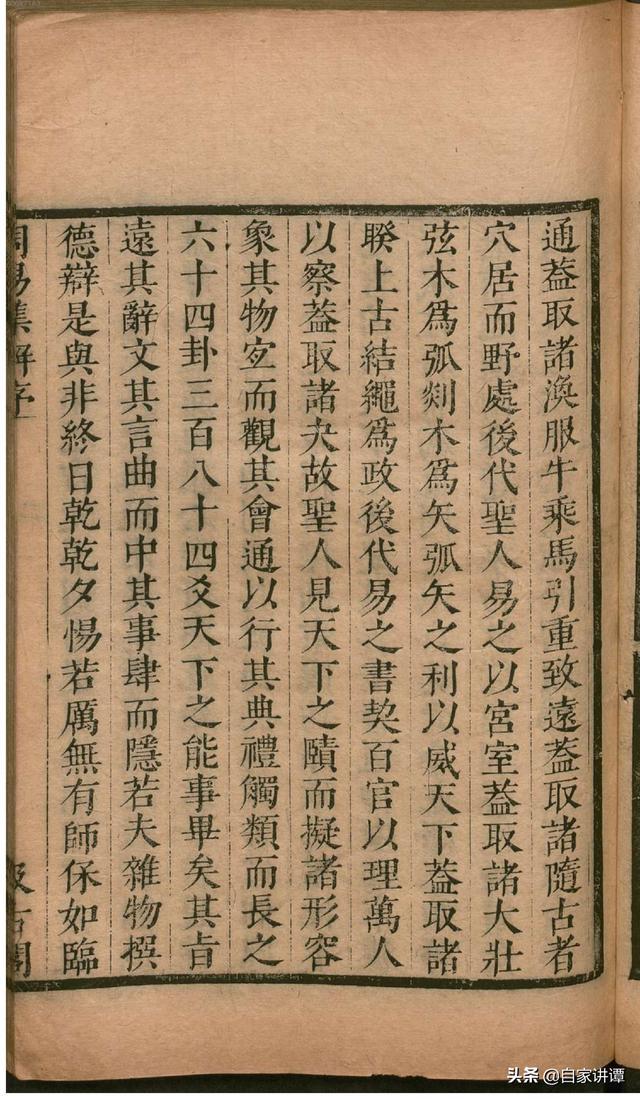 通葢取諸渙服牛乘馬引重致遠葢取諸隨古者
穴居而野處後代聖人易之以宮室葢取諸大壯
弦木爲弧剡木爲矢弧矢之利以威天下葢取諸
睽上古結繩爲政後代易之書契百官以理萬人
以察葢取諸夬故聖人見天下之賾而擬諸形容
象其物宐而觀其會通以行其典禮觸類而長之
六十四卦三百八十四爻天下之能事畢矣其㫖
遠其辭文其言曲而中其事肆而隱若夫雜物撰
德辯是與非終日乾乾夕惕若厲無有師保如臨
周易集解序
汲古閣
头条 @自家讲谭